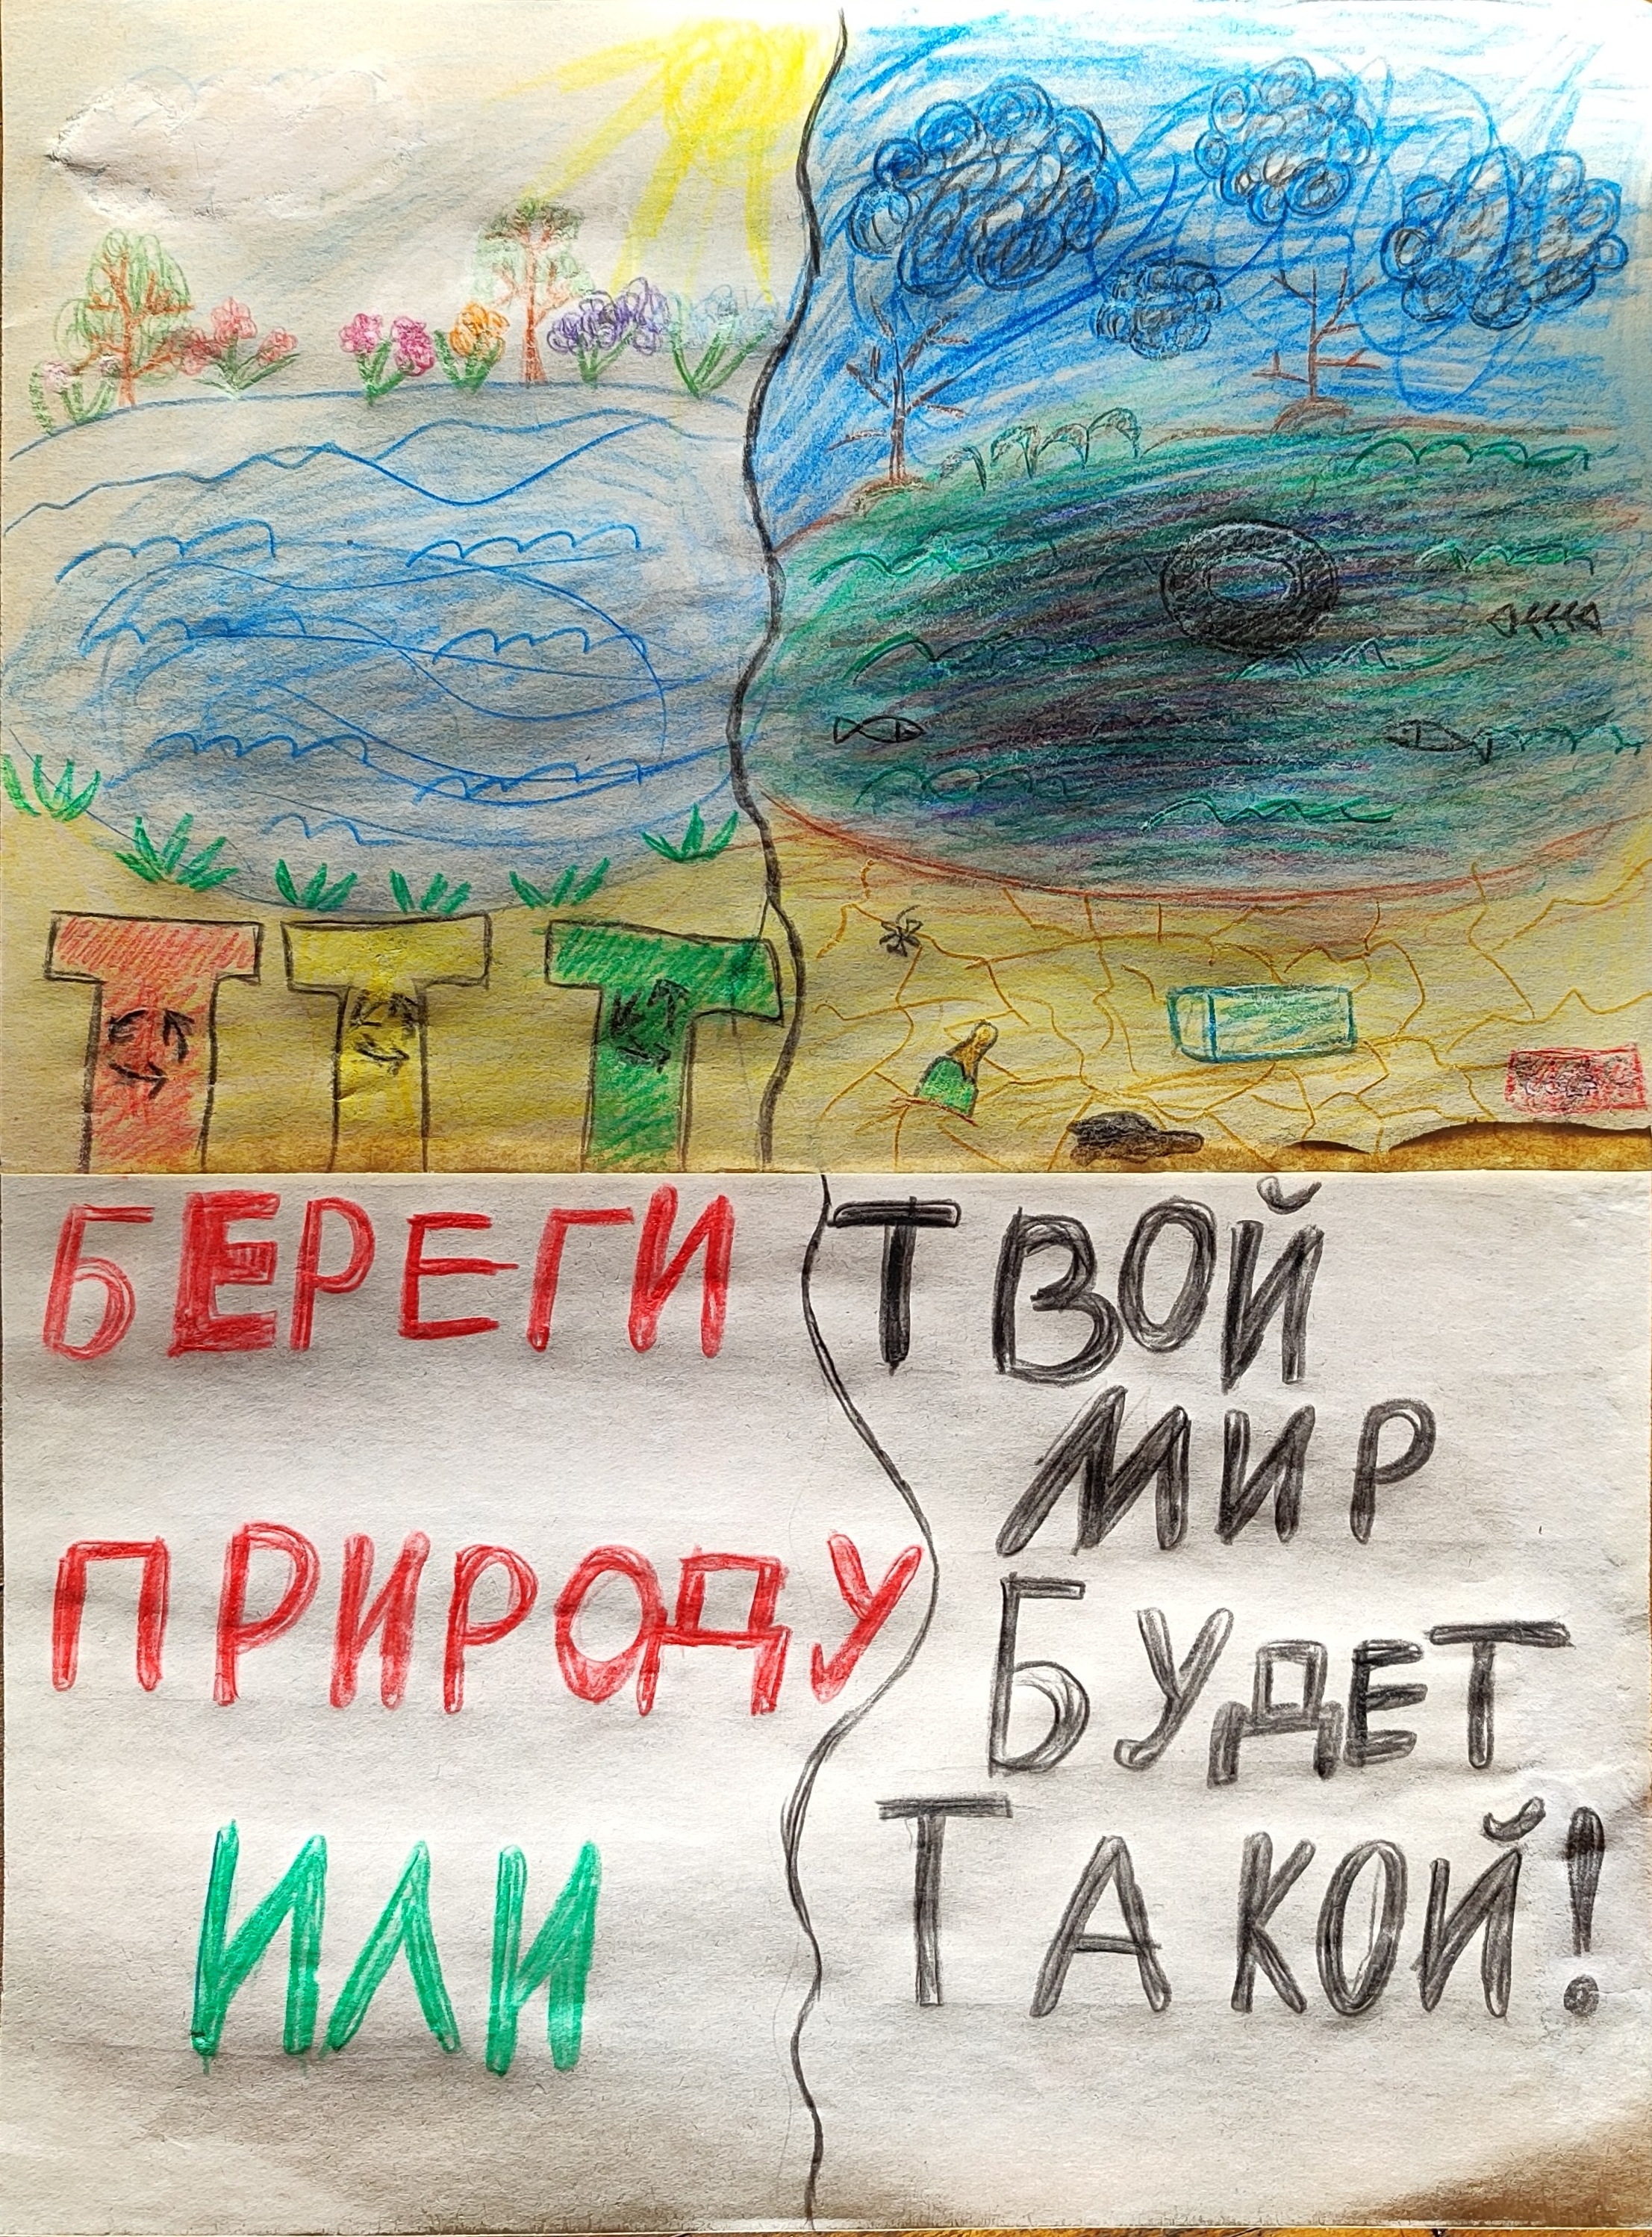 БЕРЕГИ
ПРИРОДУ
ИЛИ
ТВОЙ
МИР
БУДЕТ
ТАКОЙ!